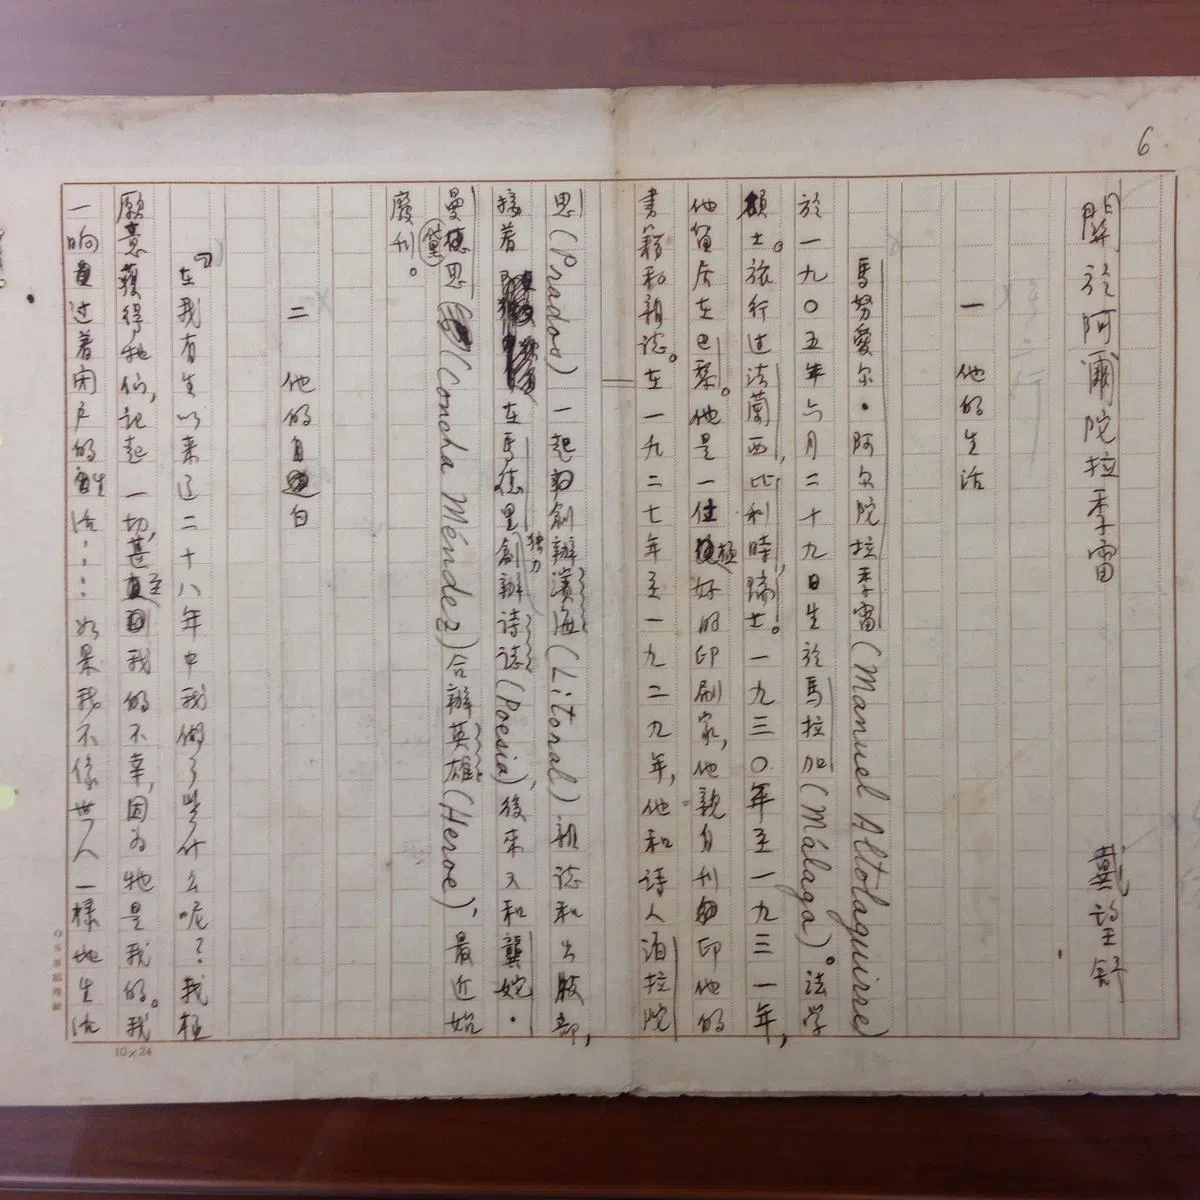 6
關於阿爾陀拉季雷 戴望舒
一 他的生活
馬努愛尔·阿尔陀拉季雷(Manuel Altolaguirre)
於一九〇五年六月二十九日生於馬拉加(Málaga)。法学
碩士。旅行过法蘭西,比利時,瑞士。一九三〇年至一九三一年,
他留居在巴黎。他是一位極好的印刷家,他親自刊印他的
書籍和雜誌。在一九二七年至一九二九年,他和詩人泊拉陀
思(Prados)一起創辦濱海(Litoral)雜誌和出版部,
接着在馬德里獨力創辦詩誌(Poesía),後來又和龔婉·
曼黛思(Concha Méndez)合辦英雄(Héroe),最近始
廢刊。
二 他的自白
「在我有生以来这二十八年中我做了些什么呢?我極
願意獲得牠们,記起一切,甚至我的不幸,因为牠是我的。我
一晌过着閉户的生活……如果我不像世人一樣地生活
10×24